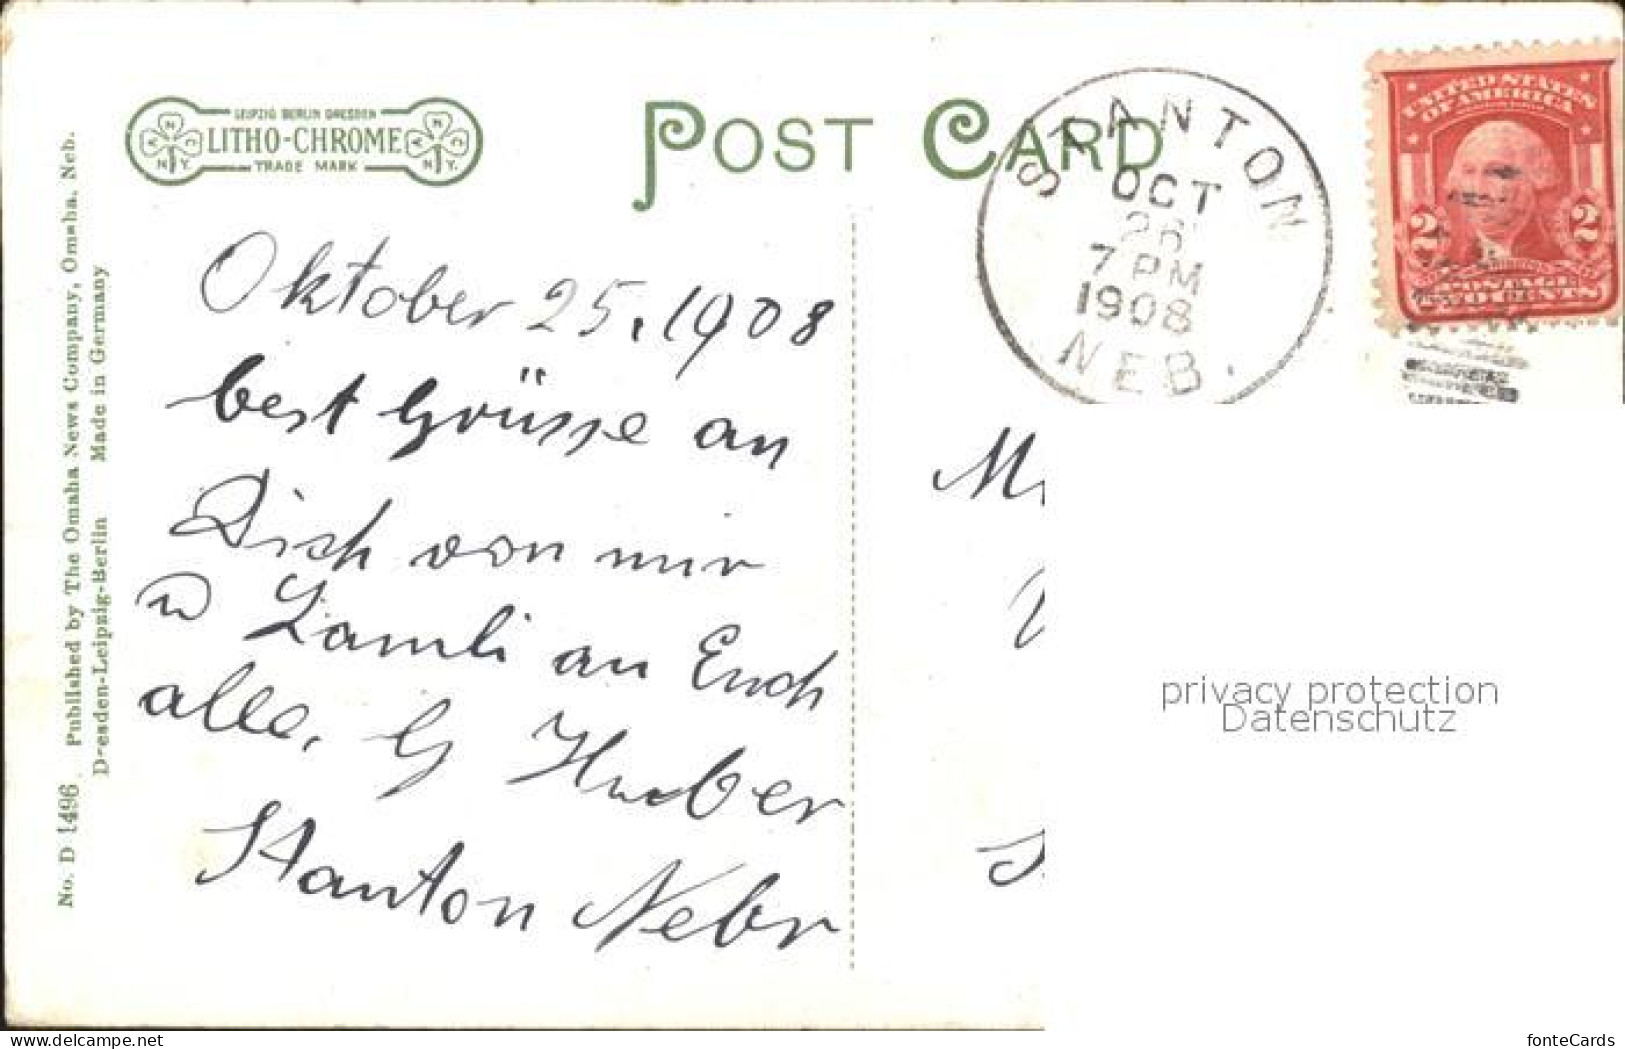 LEIPZIG BERLIN DRESDEN
LITHO-CHROME
TRADE MARK
POST CARD
STANTON
OCT
26
7 PM
1908
NEB.
UNITED STATES
OF AMERICA
2 2
POSTAGE
TWO CENTS
Oktober 25. 1908
best Grüsse an
Dich von mir
u Famli an Euch
alle. G Huber
Stanton Nebr
M
privacy protection
Datenschutz
No. D 1496 Published by The Omaha News Company, Omaha, Neb.
Dresden-Leipzig-Berlin Made in Germany
delcampe.net
fonteCards